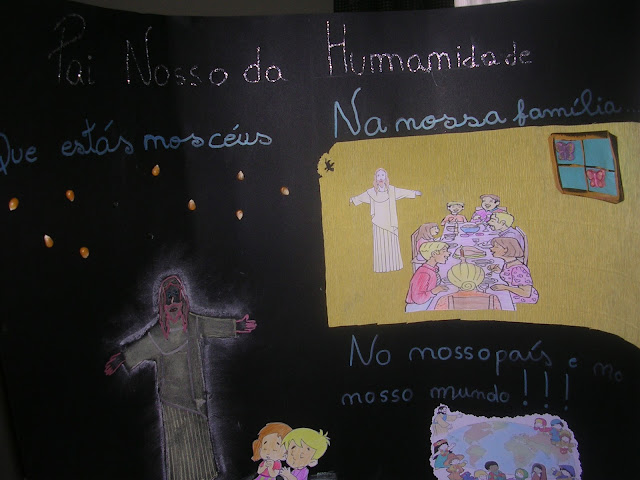 Pai Nosso da Humanidade
Que estás nos céus
Na nossa família...
No nosso país e no
nosso mundo!!!